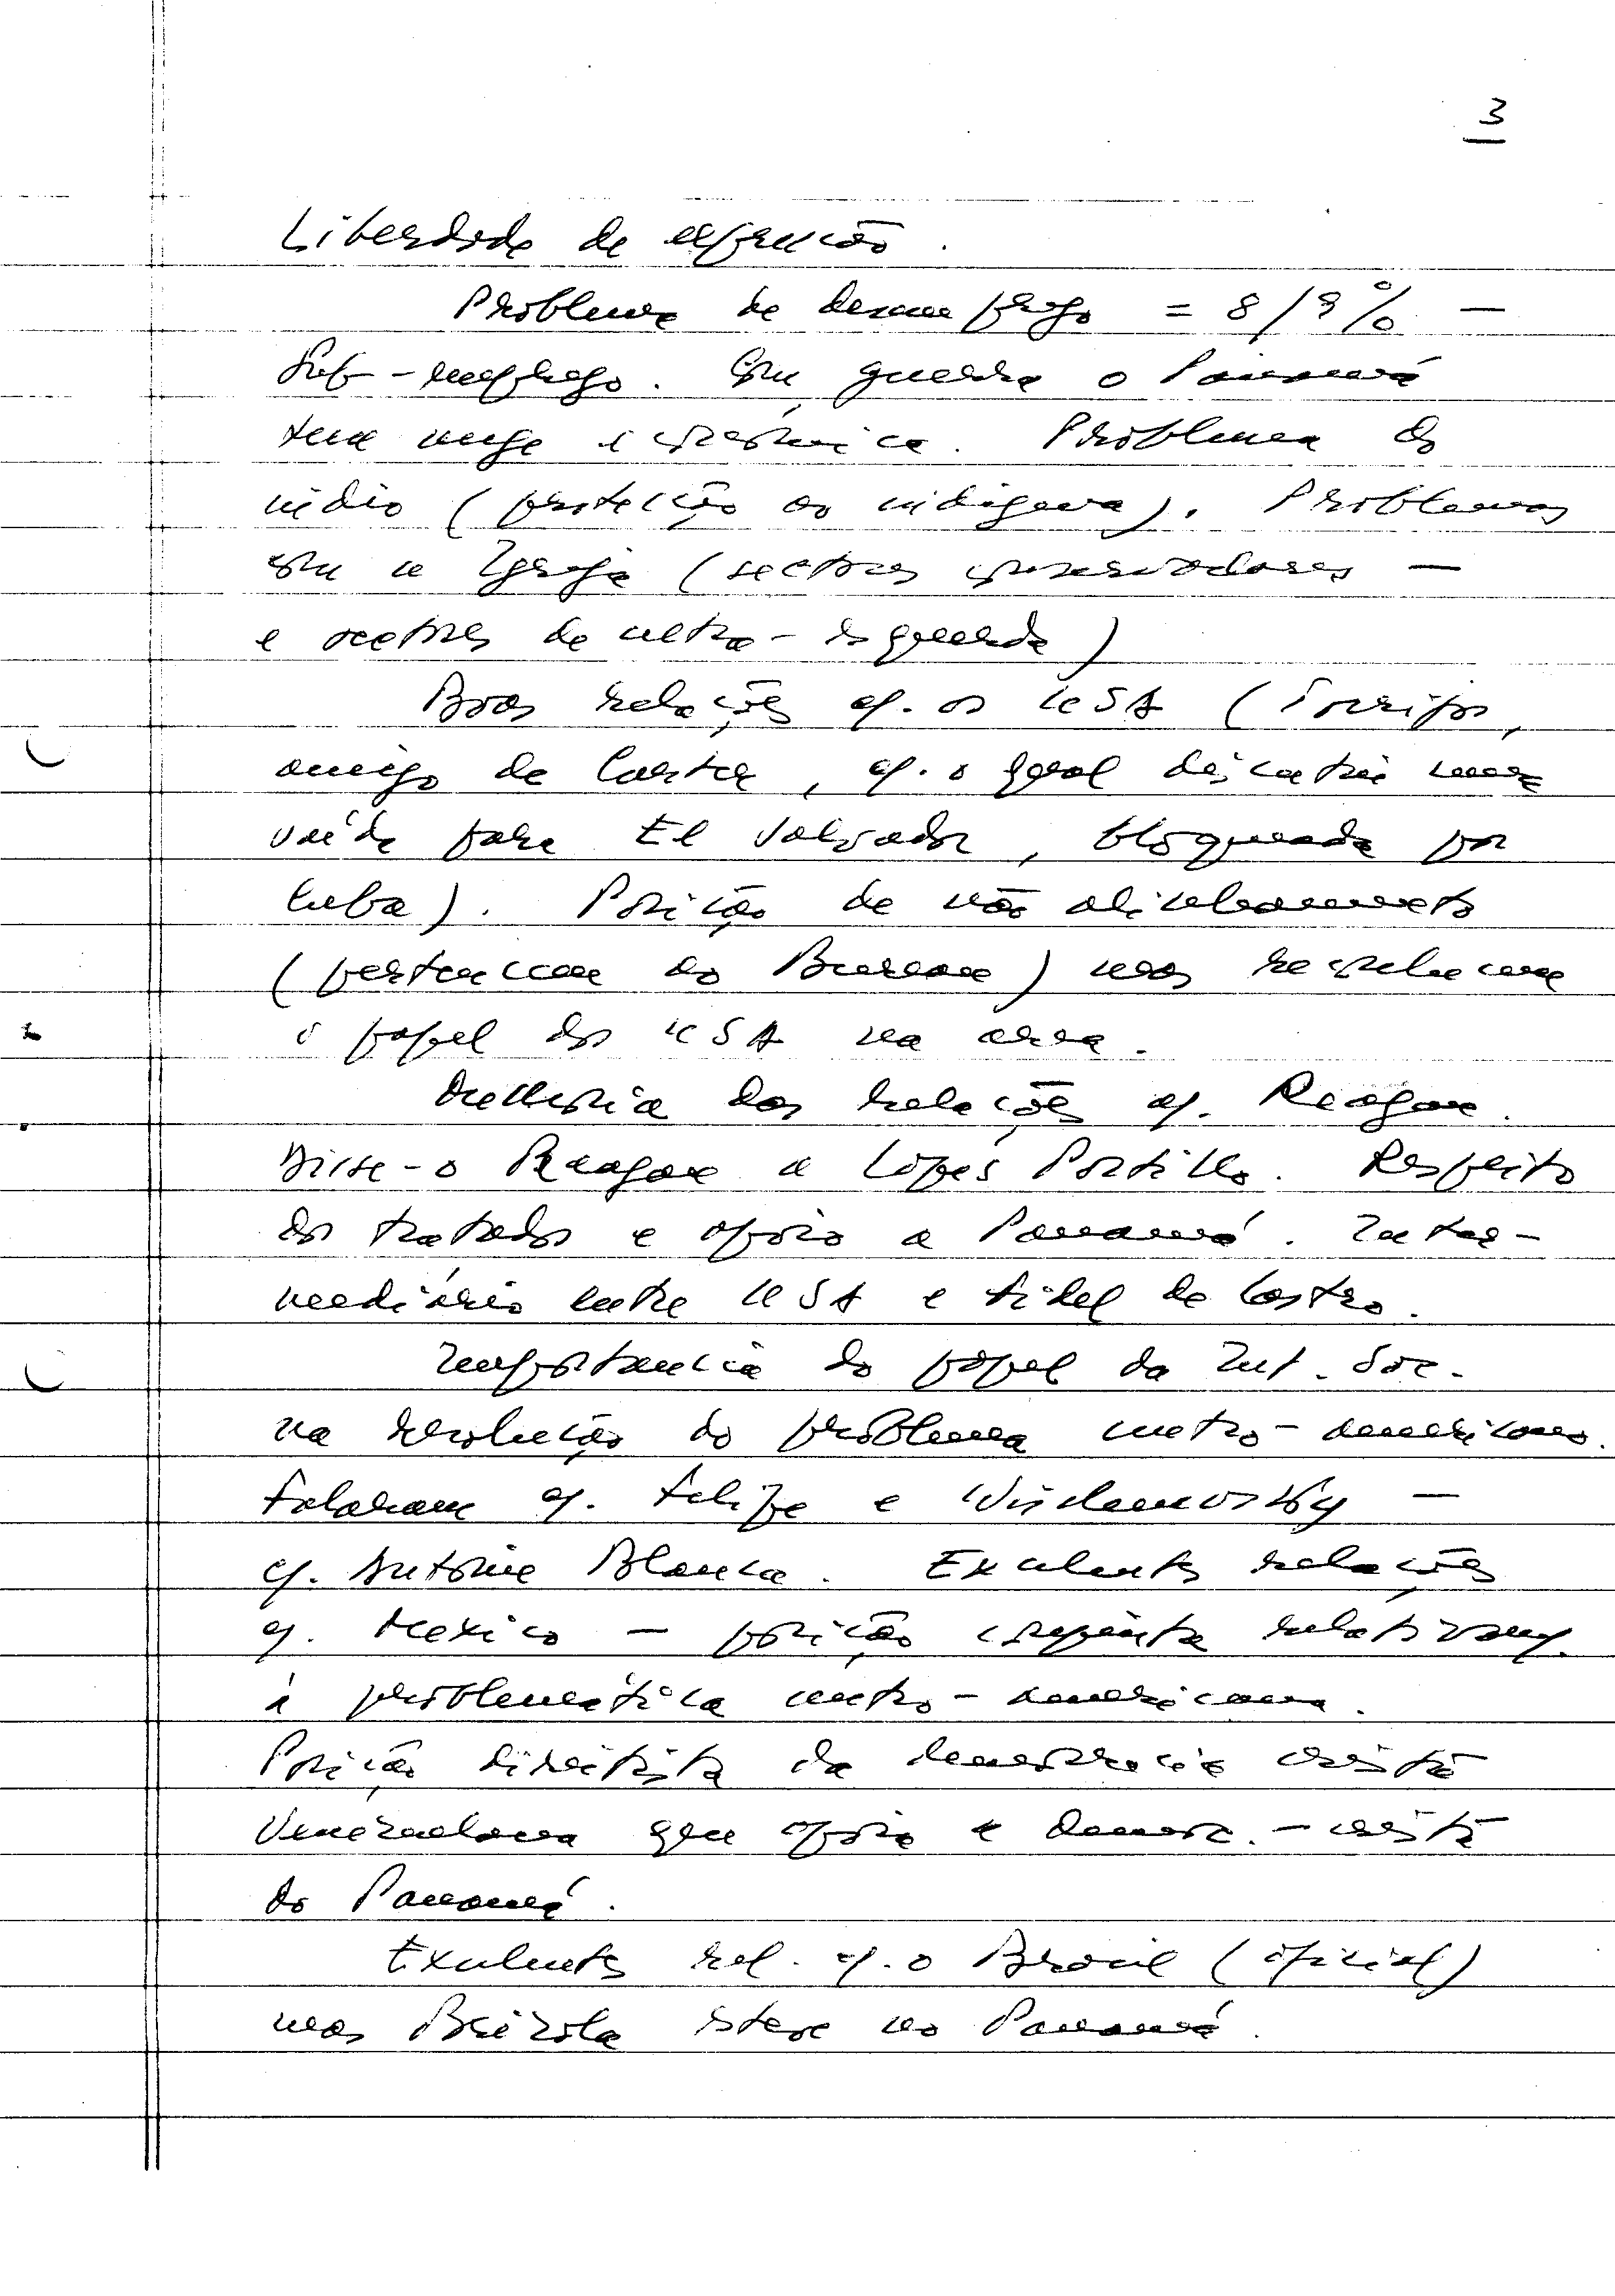 3
Liberdade de expressão.
Problema de desemprego = 8/9% —
Sub-emprego. Em guerra o Panamá
tem auge económico. Problema do
indio (protecção ao indigena). Problemas
com a Igreja (sectores conservadores —
e sectores de ultra-esquerda)
Boas relações c/. os USA (Torrijos,
amigo de Carter, c/. o qual discutiu uma
saída para El Salvador, bloqueada por
Cuba). Posição de não alinhamento
(pertencem ao Bureau) mas reconhecem
o papel dos USA na area.
Melhoria das relações c/. Reagan.
Disse-o Reagan a Lopes Portillo. Respeito
dos tratados e apoio a Panamá. Inter-
mediário entre USA e Fidel de Castro.
Importancia do papel da Int. Soc.
na resolução do problema centro-americano.
Falaram c/. Felipe e Wischnewsky —
c/. Antoine Blanca. Excelentes relações
c/. Mexico — posição conjunta relativam.
à problemática centro-americana.
Posição direitista da democracia cristã
Venezuelana que apoia a democ.-cristã
do Panamá.
Excelentes rel. c/. o Brasil (oficial)
mas Brizola esteve no Panamá.